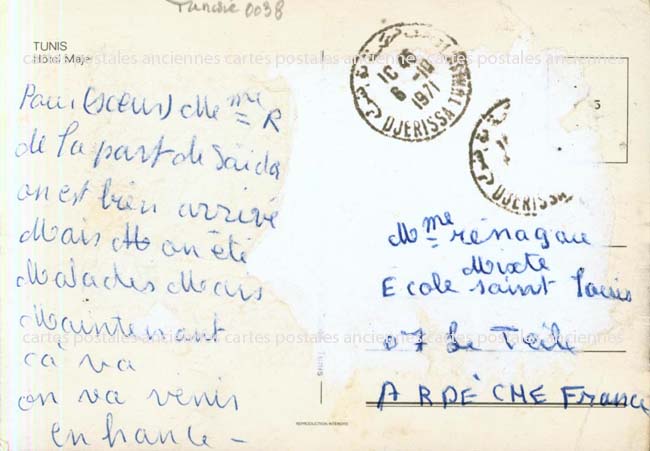 Tunisie 0038
TUNIS
Hôtel Maj
cartes postales anciennes cartes postales anciennes cartes postales anciennes
Pour (sœur) Me me R
de la part de Saida
on est bien arrivé
Mais on été
Malades Mais
Maintenant
ça va
on va venir
en france –
10 45
6 -10
1971
DJERISSA
DJERISSA
5
Mme rénagau
Mixte
Ecole saint Louis
07 Le Teile
cartes postales anciennes cartes postales anciennes cartes postales anciennes
ARDÈCHE France
REPRODUCTION INTERDITE